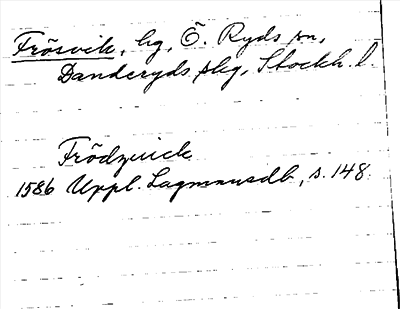 Frösvik, hg, Ö. Ryds sn,
Danderyds skg, Stockh. l.
Frödzuick
1586 Uppl. Lagmansdb, s. 148.